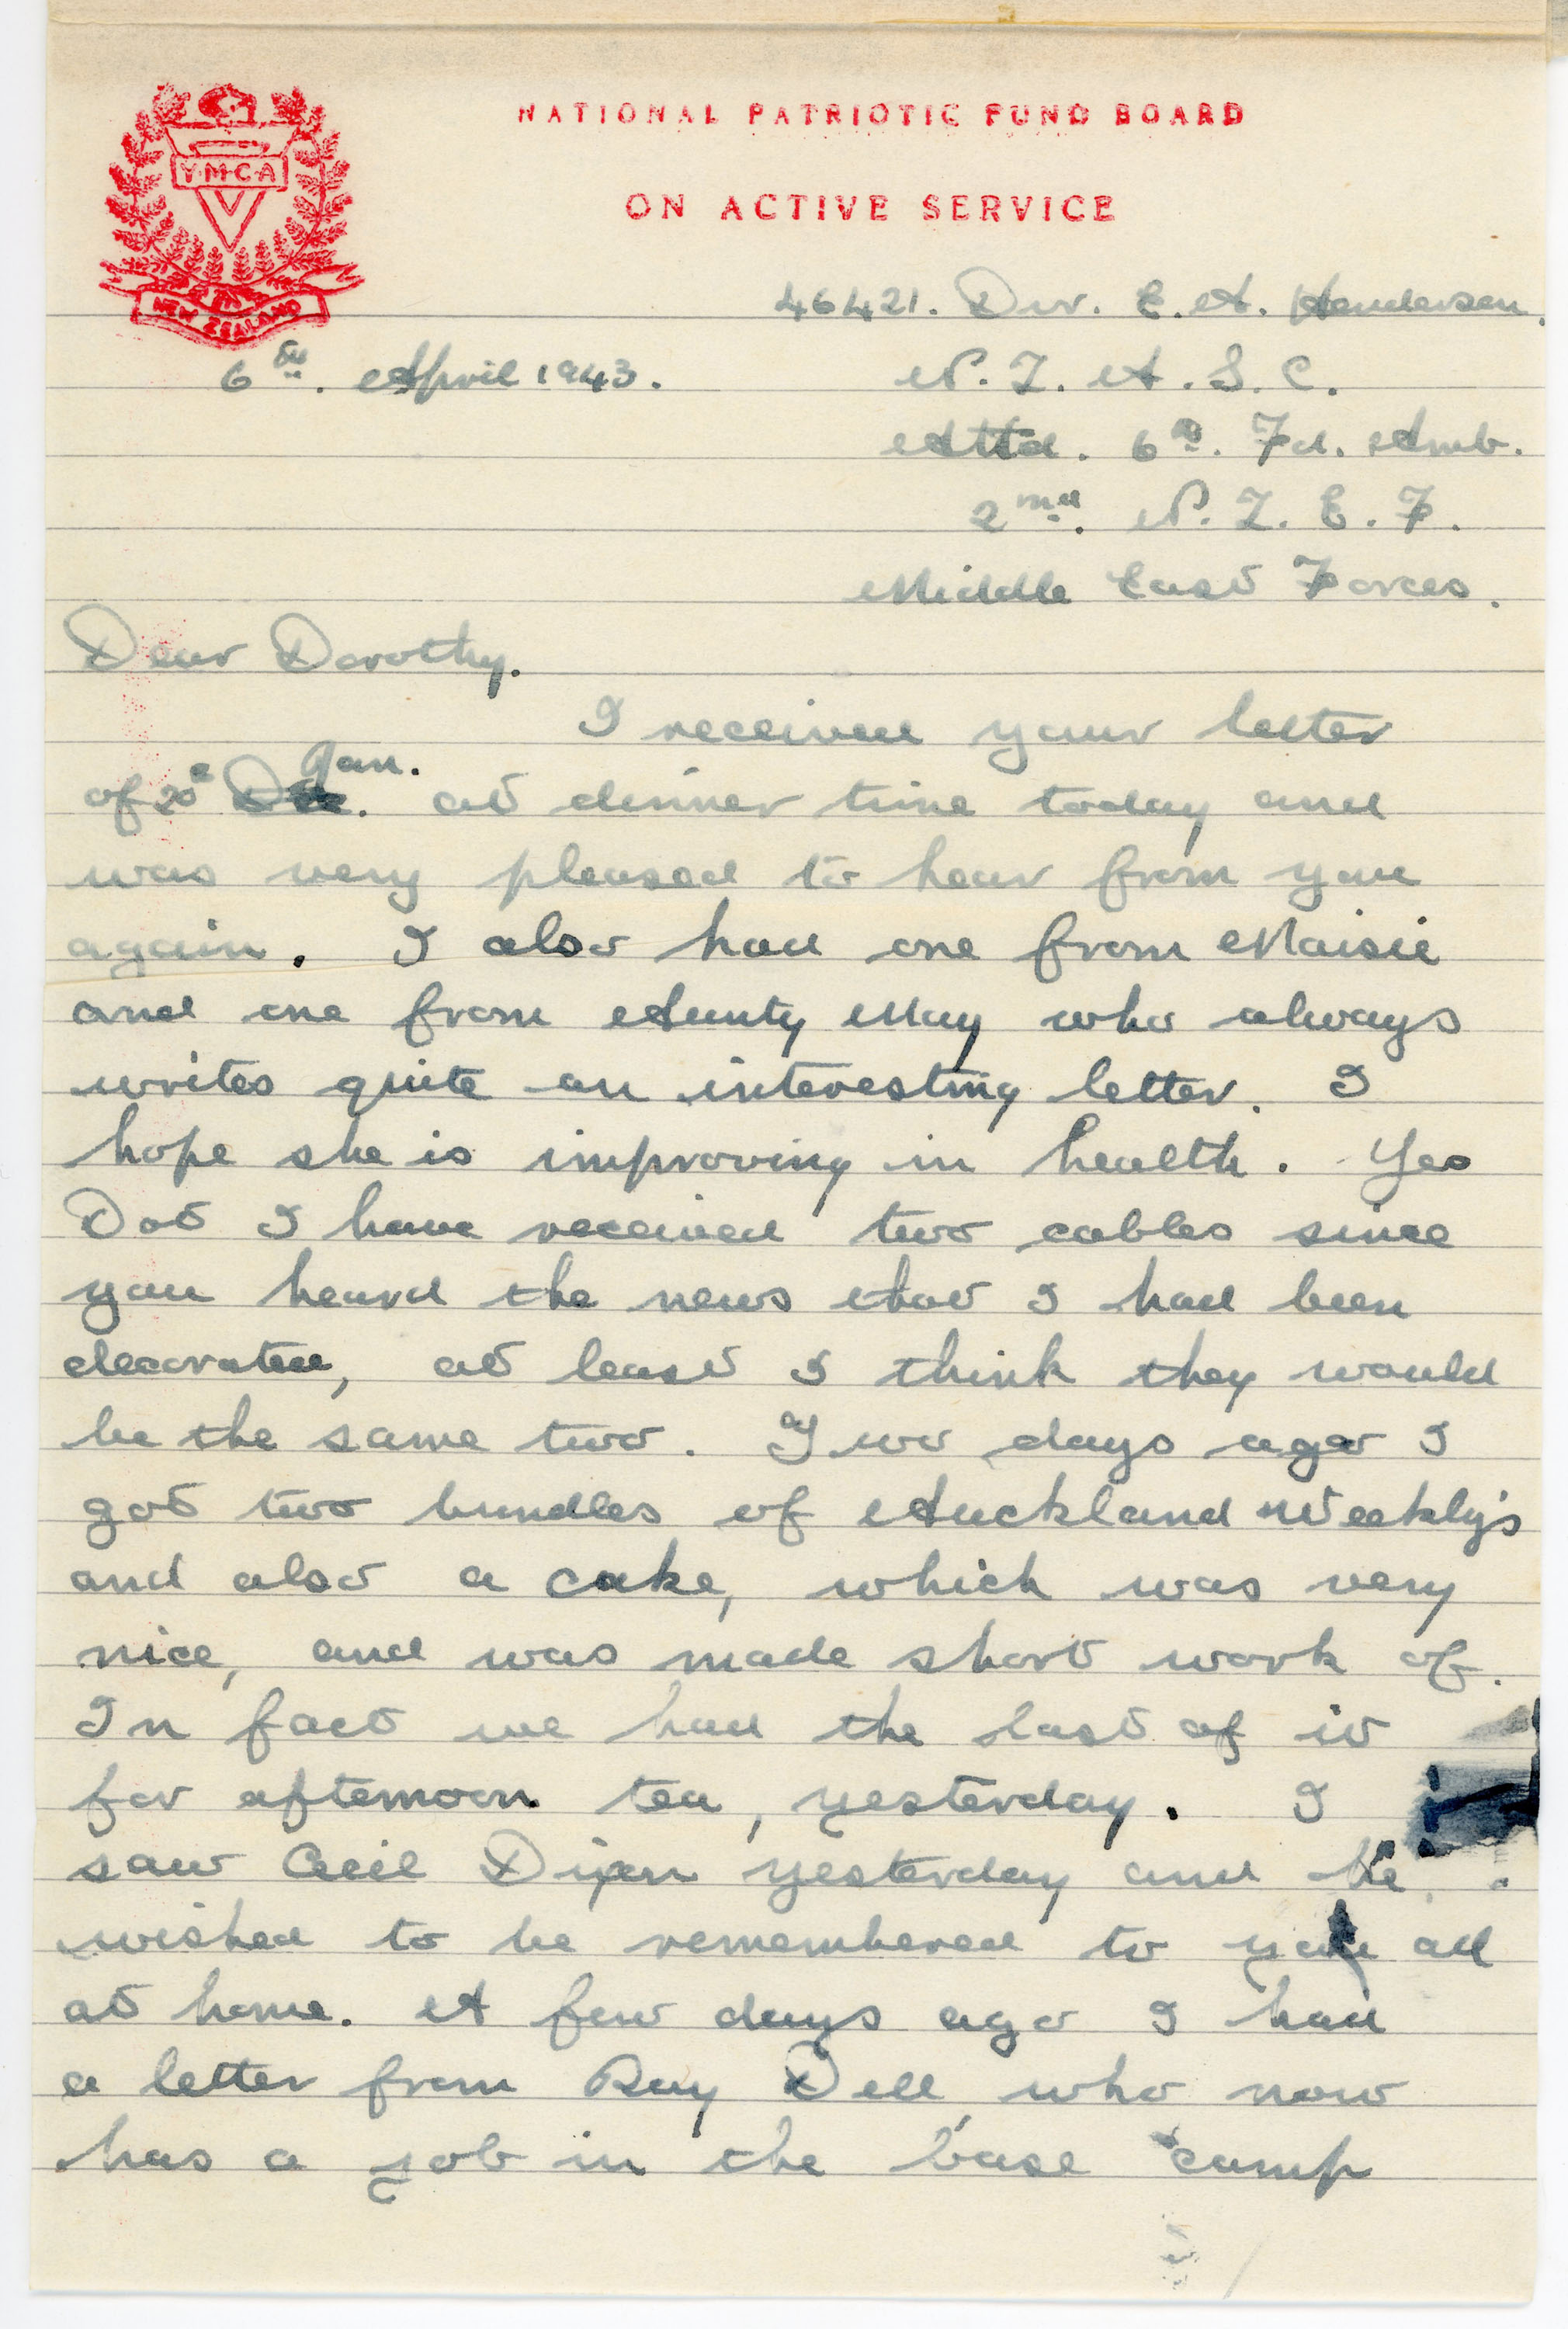 NATIONAL PATRIOTIC FUND BOARD
ON ACTIVE SERVICE
Y·M·C·A
NEW ZEALAND
46421. Dvr. E. A. Henderson.
6th. April 1943.
N. Z. A. S. C.
Attd. 6th. Fd. Amb.
2nd. N. Z. E. F.
Middle East Forces.
Dear Dorothy.
I received your letter
of 20th Jan. at dinner time today and
was very pleased to hear from you
again. I also had one from Maisie
and one from Aunty May who always
writes quite an interesting letter. I
hope she is improving in health. Yes
Dot I have received two cables since
you heard the news that I had been
decorated, at least I think they would
be the same two. Two days ago I
got two bundles of Auckland Weekly's
and also a cake, which was very
nice, and was made short work of.
In fact we had the last of it
for afternoon tea, yesterday. I
saw Cecil Dixon yesterday and he
wished to be remembered to you all
at home. A few days ago I had
a letter from Ray Dell who now
has a job in the base camp